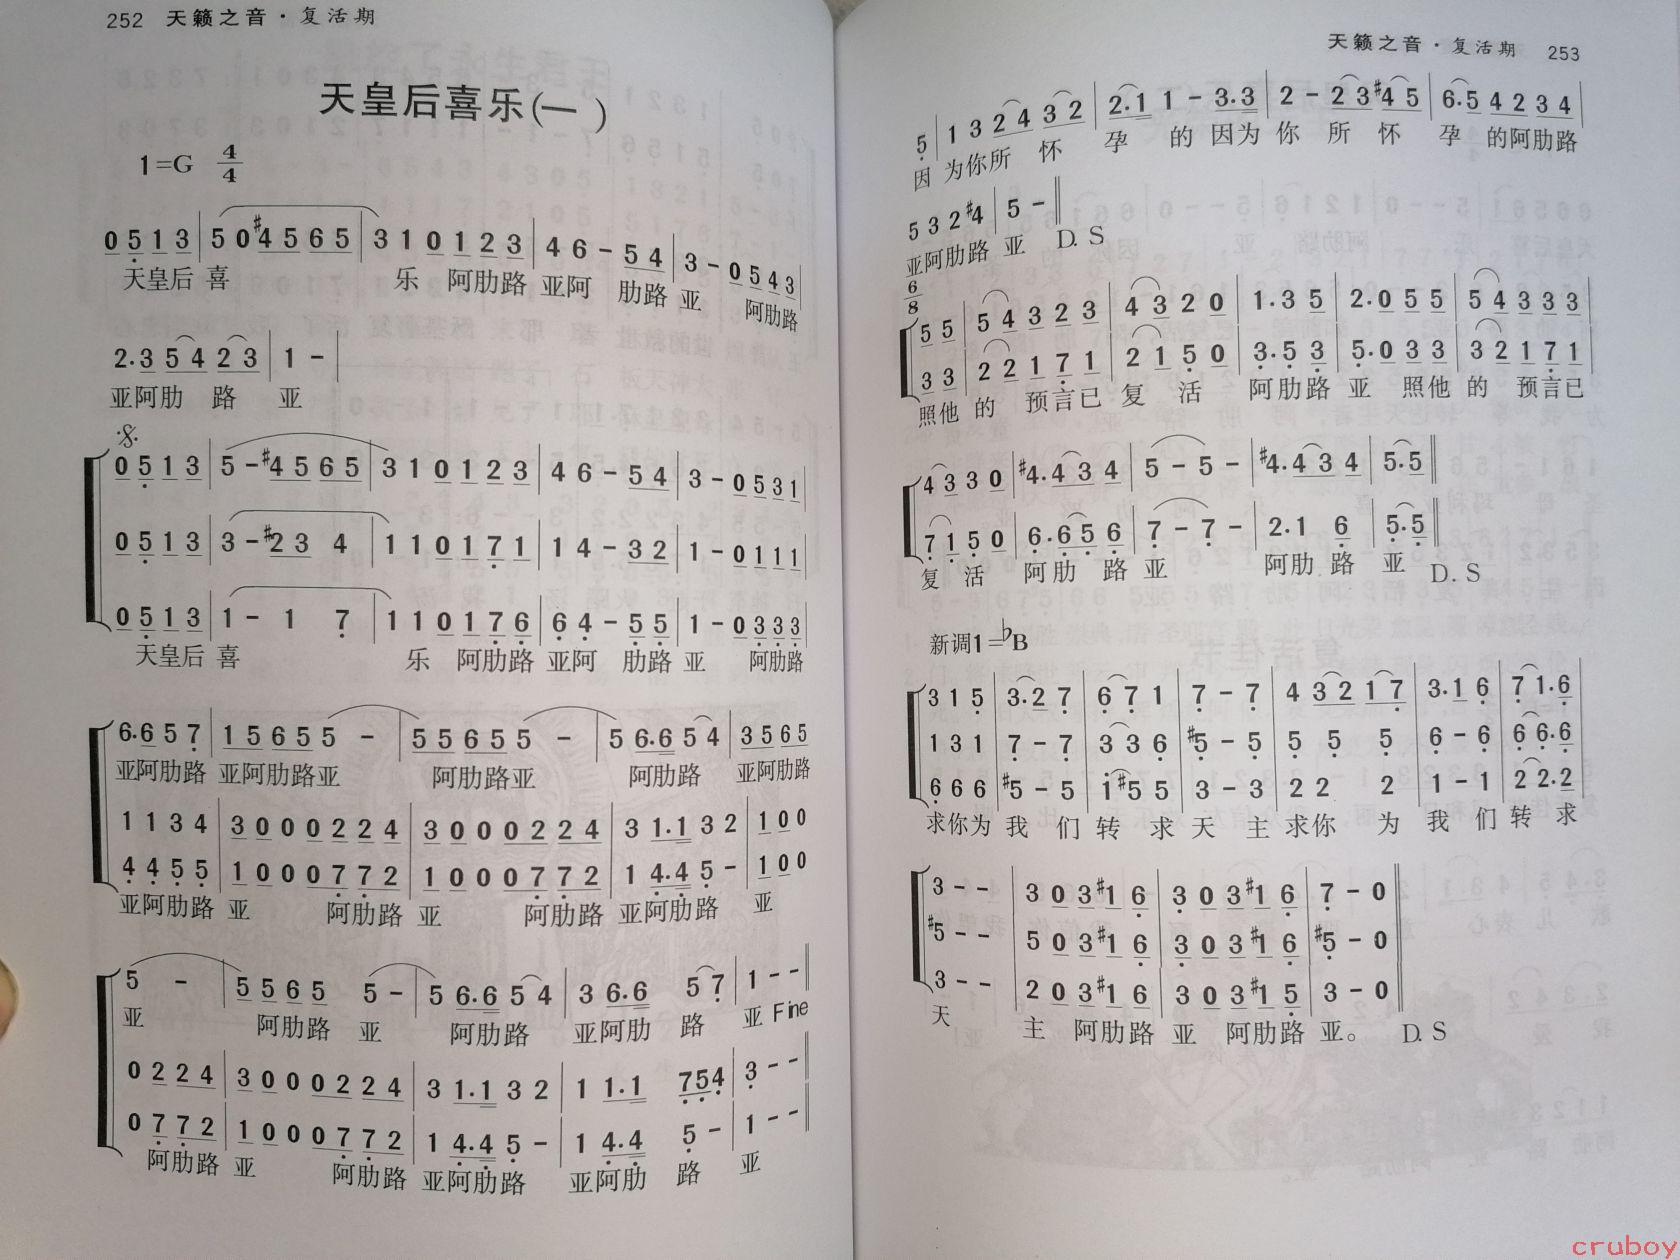 252 天籁之音·复活期
天皇后喜乐(一)
1=G 4/4
0 5 1 3 | 5 0 #4 5 6 5 | 3 1 0 1 2 3 | 4 6 - 5 4 | 3 - 0 5 4 3 |
天皇后 喜 乐 阿肋路 亚阿 肋路 亚 阿肋路
2·3 5 4 2 3 | 1 - |
亚阿肋 路 亚
0 5 1 3 | 5 - #4 5 6 5 | 3 1 0 1 2 3 | 4 6 - 5 4 | 3 - 0 5 3 1 |
0 5 1 3 | 3 - #2 3 4 | 1 1 0 1 7 1 | 1 4 - 3 2 | 1 - 0 1 1 1 |
0 5 1 3 | 1 - 1 7 | 1 1 0 1 7 6 | 6 4 - 5 5 | 1 - 0 3 3 3 |
天皇后 喜 乐 阿肋路 亚阿 肋路 亚 阿肋路
6·6 5 7 | 1 5 6 5 5 - | 5 5 6 5 5 - | 5 6·6 5 4 | 3 5 6 5
亚阿肋路 亚阿肋路亚 阿肋路亚 阿肋路 亚阿肋路
1 1 3 4 | 3 0 0 0 2 2 4 | 3 0 0 0 2 2 4 | 3 1·1 3 2 | 1 0 0
4 4 5 5 | 1 0 0 0 7 7 2 | 1 0 0 0 7 7 2 | 1 4·4 5 - | 1 0 0
亚阿肋路 亚 阿肋路 亚 阿肋路 亚阿肋路 亚
5 - | 5 5 6 5 5 - | 5 6·6 5 4 | 3 6·6 5 7 | 1 - - ||
亚 阿肋路 亚 阿肋路 亚阿肋 路 亚 Fine
0 2 2 4 | 3 0 0 0 2 2 4 | 3 1·1 3 2 | 1 1·1 7 5 4 | 3 - - ||
0 7 7 2 | 1 0 0 0 7 7 2 | 1 4·4 5 - | 1 4·4 5 - | 1 - - ||
阿肋路 亚 阿肋路 亚阿肋路 亚阿肋 路 亚
天籁之音·复活期 253
5 | 1 3 2 4 3 2 | 2·1 1 - 3·3 | 2 - 2 3 #4 5 | 6·5 4 2 3 4 |
因 为你所 怀 孕 的 因为 你 所 怀 孕 的阿肋路
5 3 2 #4 | 5 - ||
亚阿肋路 亚 D.S
6/8
5 5 | 5 4 3 2 3 | 4 3 2 0 | 1·3 5 | 2·0 5 5 | 5 4 3 3 3 |
3 3 | 2 2 1 7 1 | 2 1 5 0 | 3·5 3 | 5·0 3 3 | 3 2 1 7 1
照他 的 预言已 复 活 阿肋路 亚 照他 的 预言已
4 3 3 0 | #4·4 3 4 | 5 - 5 - | #4·4 3 4 | 5·5 ||
7 1 5 0 | 6·6 5 6 | 7 - 7 - | 2·1 6 | 5·5 ||
复 活 阿肋 路 亚 阿肋 路 亚 D.S
新调1=♭B
3 1 5 | 3·2 7 | 6 7 1 | 7 - 7 | 4 3 2 1 7 | 3·1 6 | 7 1·6 |
1 3 1 | 7 - 7 | 3 3 6 | #5 - 5 | 5 5 5 | 6 - 6 | 6 6·6 |
6 6 6 | #5 - 5 | 1 #5 5 | 3 - 3 | 2 2 2 | 1 - 1 | 2 2·2 |
求你为 我 们 转 求 天 主 求你 为 我 们 转 求
3 - - | 3 0 3 #1 6 | 3 0 3 #1 6 | 7 - 0 ||
#5 - - | 5 0 3 #1 6 | 3 0 3 #1 6 | #5 - 0 ||
3 - - | 2 0 3 #1 6 | 3 0 3 #1 5 | 3 - 0 ||
天 主 阿肋路 亚 阿肋路 亚。 D.S
cruboy